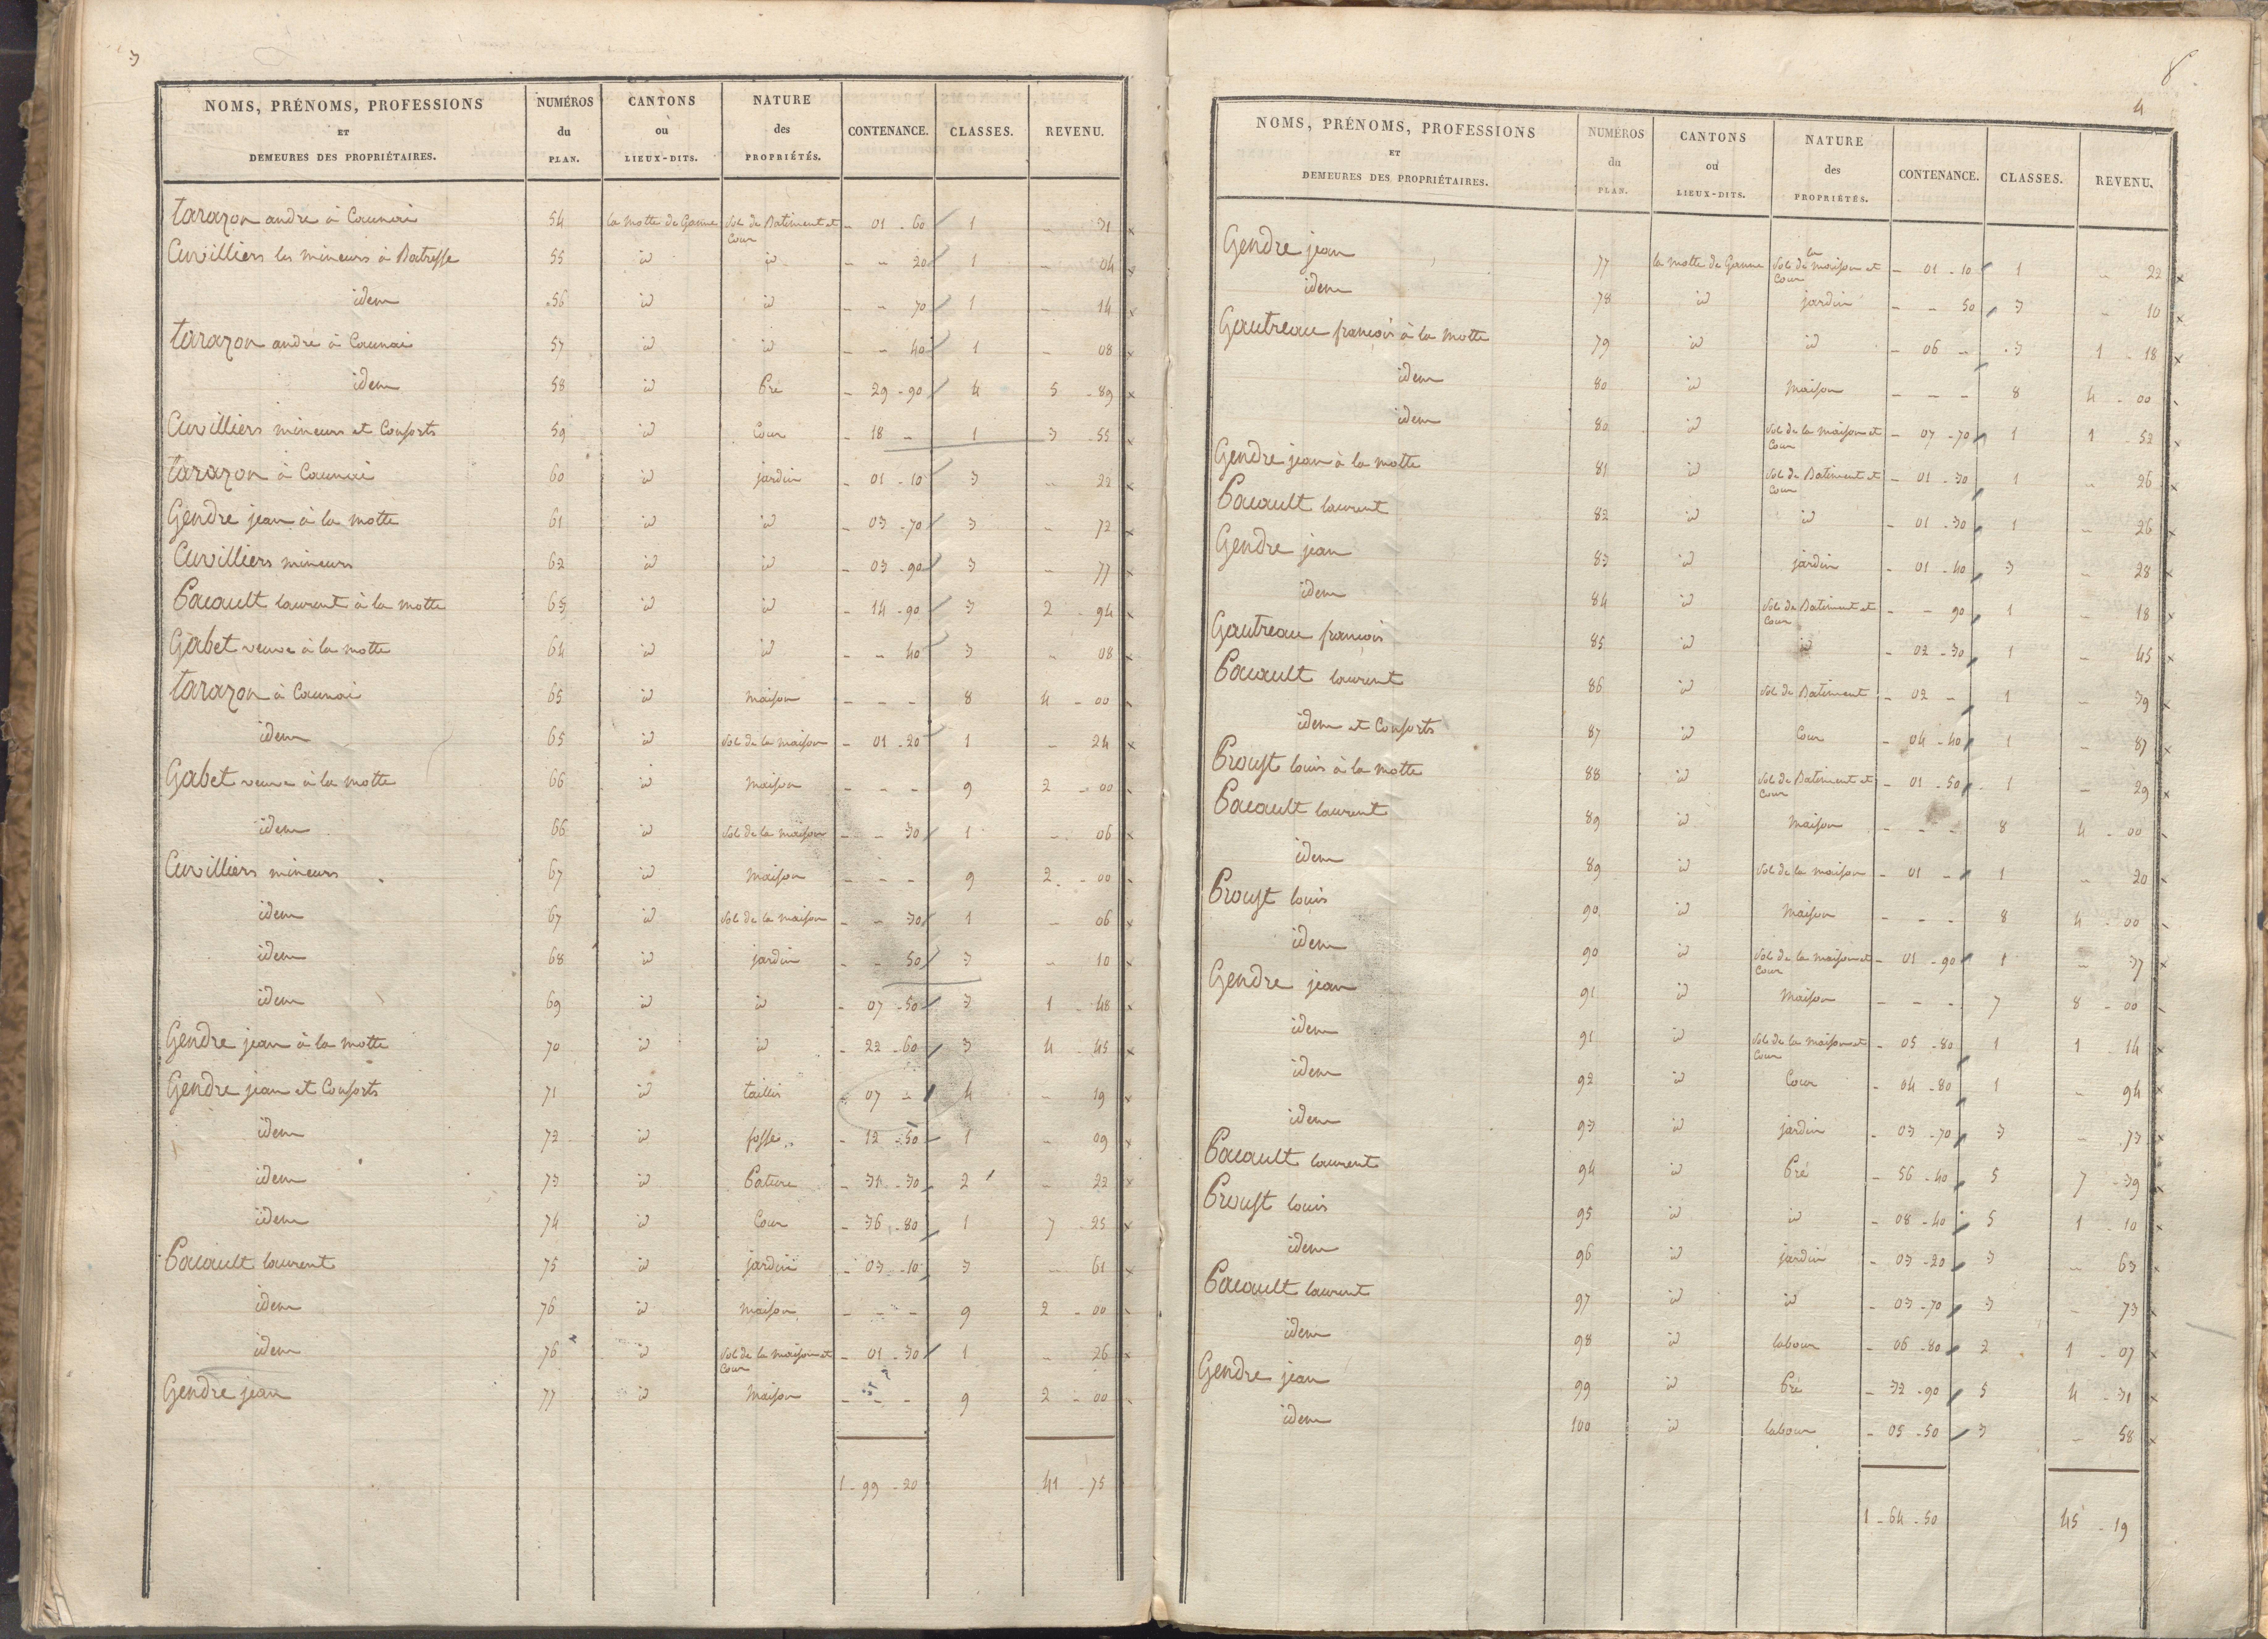 3
NOMS, PRÉNOMS, PROFESSIONS ET DEMEURES DES PROPRIÉTAIRES. NUMÉROS du PLAN. CANTONS ou LIEUX-DITS. NATURE des PROPRIÉTÉS. CONTENANCE. CLASSES. REVENU.
tarazon andre à Caunai 54 la motte de Ganne Sol de Batiment et Cour - 01 - 60 1 - 31 x
Cuvilliers les mineurs à Batresse 55 id id - - 20 1 - 04 x
idem 56 id id - - 70 1 - 14 x
tarazon andré à Caunai 57 id id - - 40 1 - 08 x
idem 58 id Pré - 29 - 90 4 5 - 89 x
Cuvilliers mineurs et Consorts 59 id Cour - 18 - 1 3 - 55 x
tarazon à Caunai 60 id jardin - 01 - 10 3 - 22 x
Gendre jean à la motte 61 id id - 03 - 70 3 - 72 x
Cuvilliers mineurs 62 id id - 03 - 90 3 - 77 x
Pacault laurent à la motte 63 id id - 14 - 90 3 2 - 94 x
Gabet veuve à la motte 64 id id - - 40 3 - 08 x
tarazon à Caunai 65 id maison - - - 8 4 - 00 -
idem 65 id Sol de la maison - 01 - 20 1 - 24 x
Gabet veuve à la motte 66 id maison - - - 9 2 - 00 -
idem 66 id Sol de la maison - - 30 1 - 06 x
Cuvilliers mineurs 67 id maison - - - 9 2 - 00 -
idem 67 id Sol de la maison - - 30 1 - 06 x
idem 68 id jardin - - 50 3 - 10 x
idem 69 id id - 07 - 50 3 1 - 48 x
Gendre jean à la motte 70 id id - 22 - 60 3 4 - 45 x
Gendre jean et Consorts 71 id taillis - 07 - 4 - 19 x
idem 72 id fossé - 12 - 50 1 - 09 x
idem 73 id Pature - 31 - 30 2 - 23 x
idem 74 id Cour - 36 - 80 1 7 - 25 x
Pacault laurent 75 id jardin - 03 - 10 3 - 61 x
idem 76 id maison - - - 9 2 - 00 -
idem 76 id Sol de la maison et Cour - 01 - 30 1 - 26 x
Gendre jean 77 id maison - - - 9 2 - 00 -
1 - 99 - 20 41 - 75
8
4
NOMS, PRÉNOMS, PROFESSIONS ET DEMEURES DES PROPRIÉTAIRES. NUMÉROS du PLAN. CANTONS ou LIEUX-DITS. NATURE des PROPRIÉTÉS. CONTENANCE. CLASSES. REVENU.
Gendre jean 77 la motte de Ganne Sol de la maison et Cour - 01 - 10 1 - 22 x
idem 78 id jardin - - 50 3 - 10 x
Gautreau françois à la motte 79 id id - 06 - 3 1 - 18 x
idem 80 id maison - - - 8 4 - 00 -
idem 80 id Sol de la maison et Cour - 07 - 70 1 1 - 52 x
Gendre jean à la motte 81 id Sol de Batiment et Cour - 01 - 30 1 - 26 x
Pacault laurent 82 id id - 01 - 30 1 - 26 x
Gendre jean 83 id jardin - 01 - 40 3 - 28 x
idem 84 id Sol de Batiment et Cour - - 90 1 - 18 x
Gautreau françois 85 id id - 02 - 30 1 - 45 x
Pacault laurent 86 id Sol de Batiment - 02 - 1 - 39 x
idem et Consorts 87 id Cour - 04 - 40 1 - 87 x
Proust louis à la motte 88 id Sol de Batiment et Cour - 01 - 50 1 - 29 x
Pacault laurent 89 id maison - - - 8 4 - 00 -
idem 89 id Sol de la maison - 01 - 1 - 20 x
Proust louis 90 id maison - - - 8 4 - 00 -
idem 90 id Sol de la maison et Cour - 01 - 90 1 - 37 x
Gendre jean 91 id maison - - - 7 8 - 00 -
idem 91 id Sol de la maison et Cour - 05 - 80 1 1 - 14 x
idem 92 id Cour - 04 - 80 1 - 94 x
idem 93 id jardin - 03 - 70 3 - 73 x
Pacault laurent 94 id Pré - 56 - 40 5 7 - 39 x
Proust louis 95 id id - 08 - 40 5 1 - 10 x
idem 96 id jardin - 03 - 20 3 - 63 x
Pacault laurent 97 id id - 03 - 70 3 - 73 x
idem 98 id labour - 06 - 80 2 1 - 07 x
Gendre jean 99 id Pré - 32 - 90 5 4 - 31 x
idem 100 id labour - 05 - 50 3 - 58 x
1 - 64 - 50 45 - 19